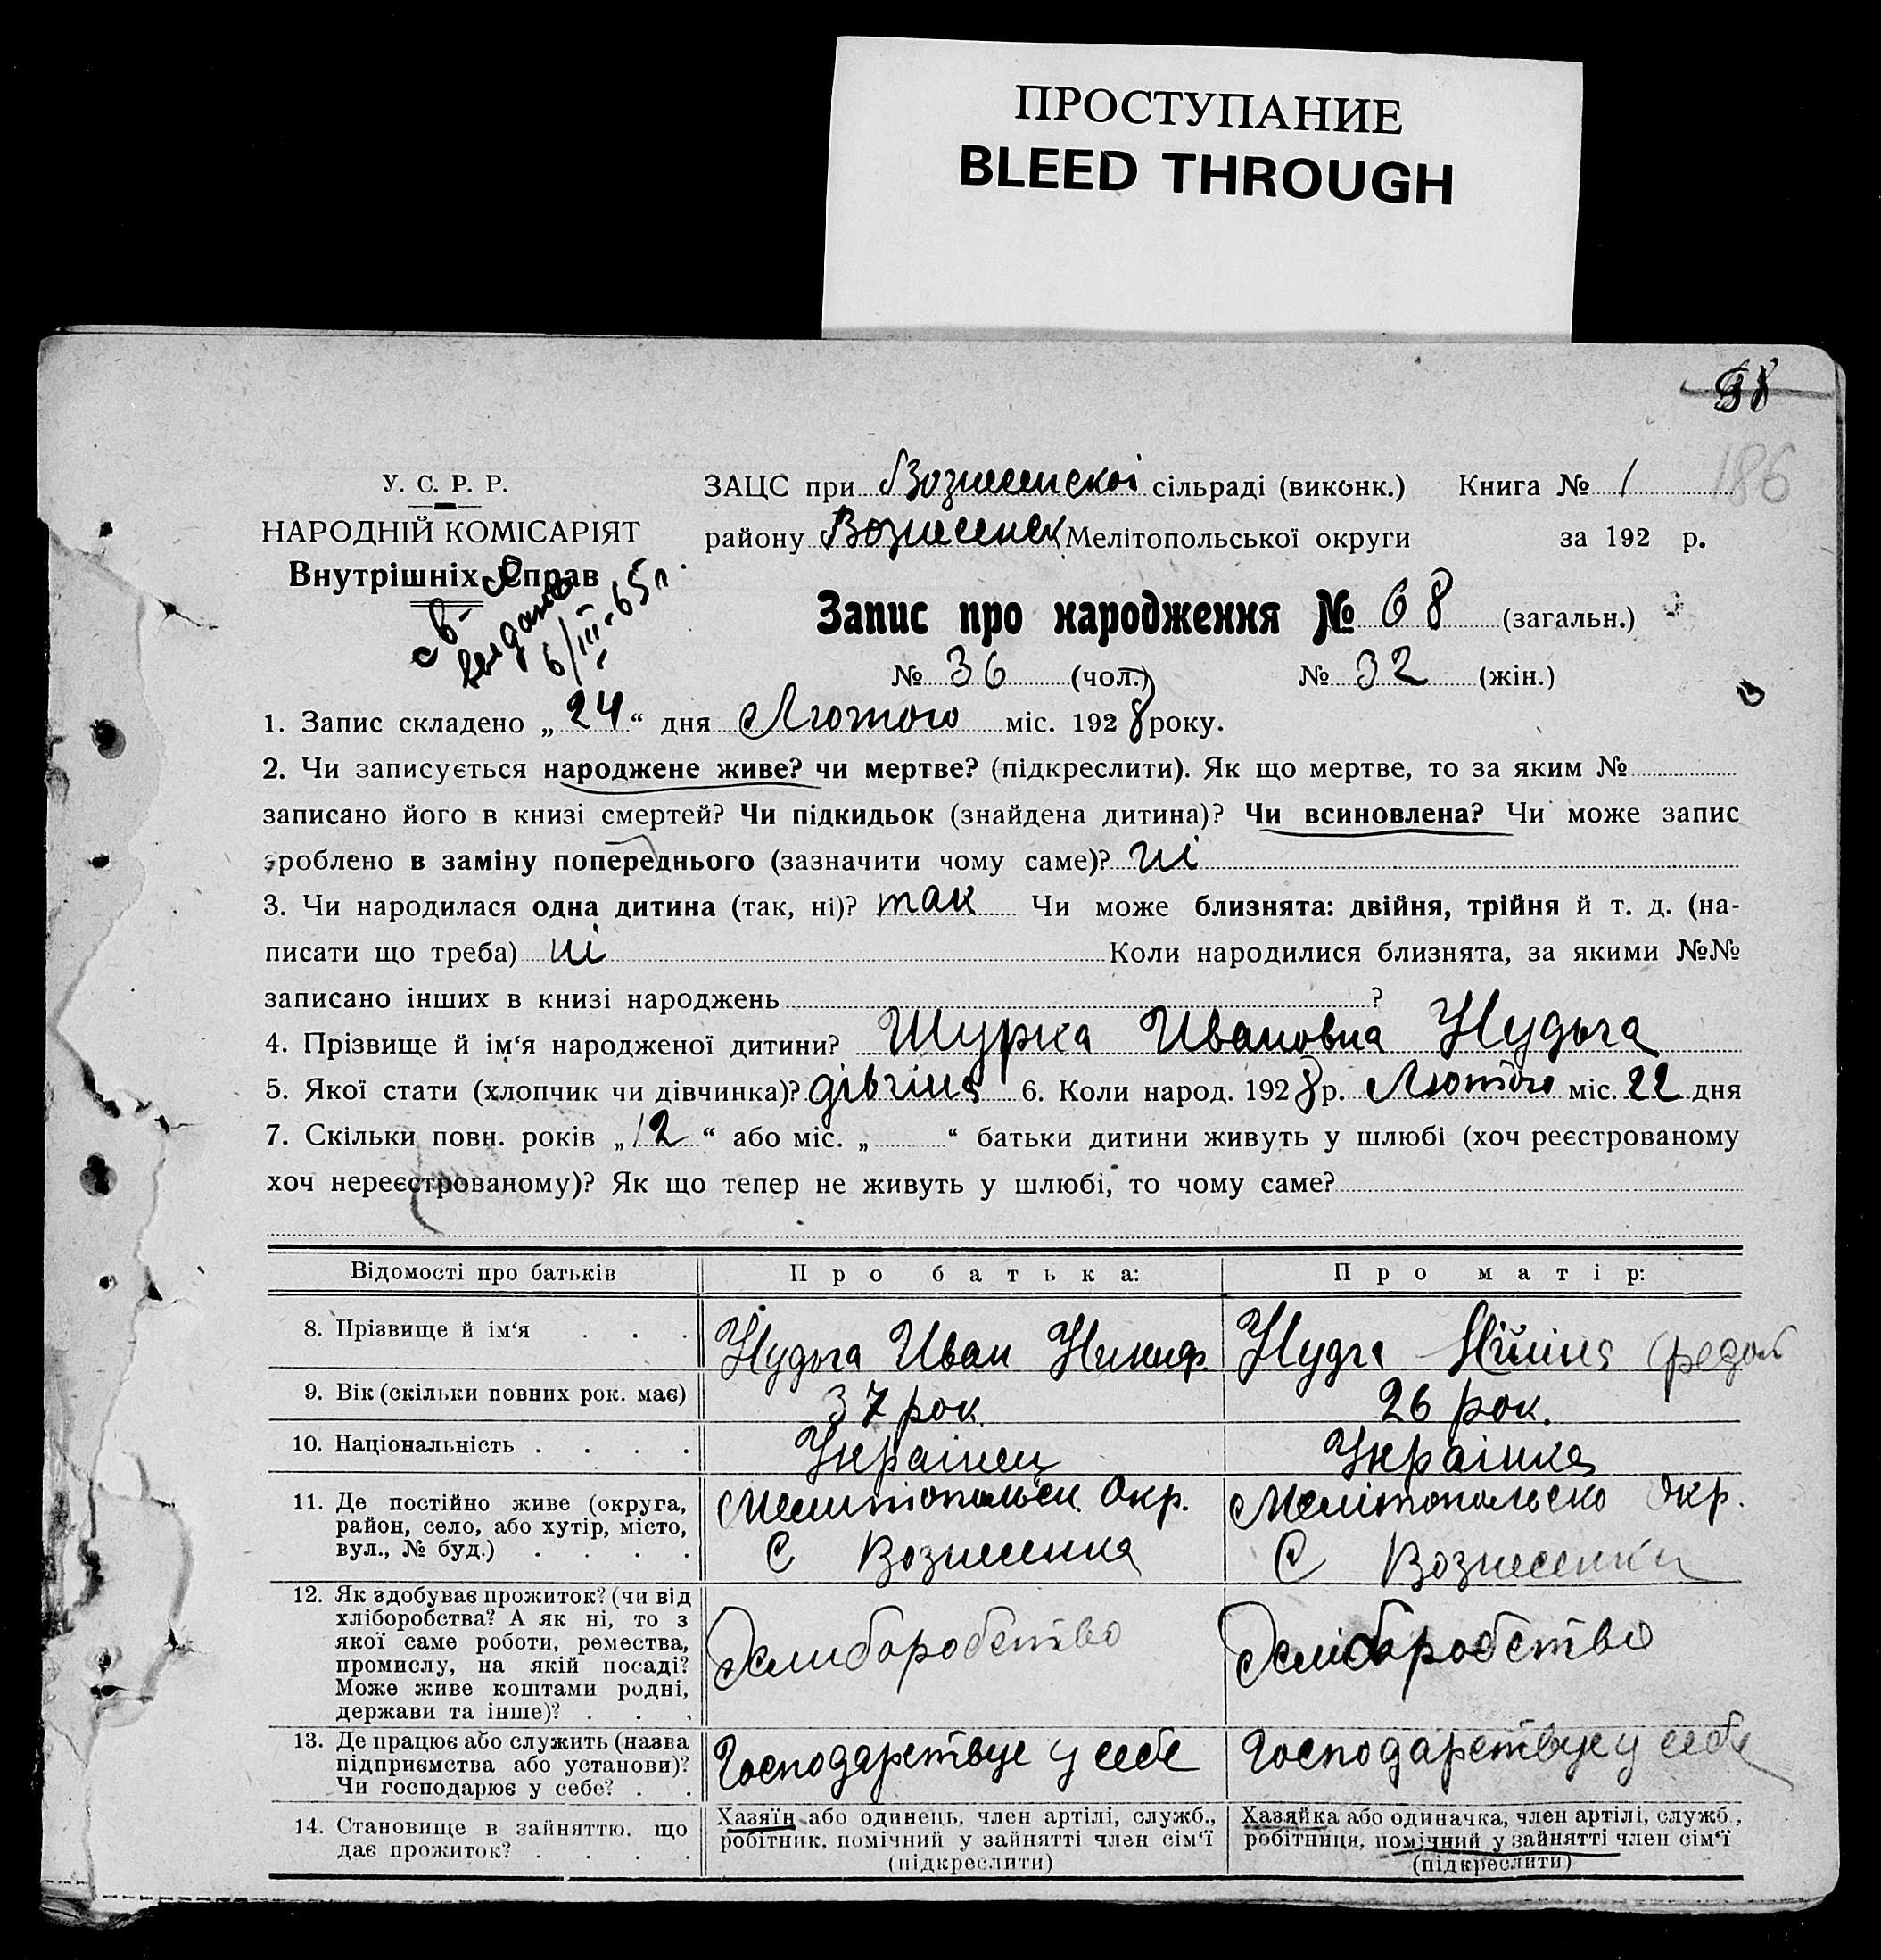 ПРОСТУПАНИЕ
BLEED THROUGH
98
186
У. С. Р. Р.
НАРОДНІЙ КОМІСАРІЯТ
Внутрішніх Справ
св-во
видано
6/III-65г.
ЗАЦС при Вознесенскоі сільраді (виконк.) Книга № 1
району Вознесенск Мелітопольської округи за 192 р.
Запис про народження № 68 (загальн.)
№ 36 (чол.) № 32 (жін.)
1. Запис складено „ 24 “ дня Лютого міс. 1928 року.
2. Чи записується народжене живе? чи мертве? (підкреслити). Як що мертве, то за яким №
записано його в книзі смертей? Чи підкидьок (знайдена дитина)? Чи всиновлена? Чи може запис
зроблено в заміну попереднього (зазначити чому саме)? ні
3. Чи народилася одна дитина (так, ні)? так Чи може близнята: двійня, трійня й т. д. (на-
писати що треба) ні Коли народилися близнята, за якими №№
записано інших в книзі народжень ?
4. Прізвище й ім‘я народженої дитини? Шурка Ивановна Нудьга
5. Якої стати (хлопчик чи дівчинка)? дівчина 6. Коли народ. 1928 р. Лютого міс. 22 дня
7. Скільки повн. років „ 12 “ або міс. „ “ батьки дитини живуть у шлюбі (хоч реєстрованому
хоч нереєстрованому)? Як що тепер не живуть у шлюбі, то чому саме?
Відомості про батьків Про батька: Про матір:
8. Прізвище й ім‘я . . . Нудьга Иван Никиф. Нудга Федов
9. Вік (скільки повних рок. має) 37 рок. 26 рок.
10. Національність . . . . Украінец Украінка
11. Де постійно живе (округа, Мелитопольск. Окр. Мелітопольско Окр.
район, село, або хутір, місто,
вул., № буд.) . . . . С Вознесенка С Вознесенки
12. Як здобуває прожиток? (чи від
хліборобства? А як ні, то з
якої саме роботи, ремества, Хлиборобство Хліборобство
промислу, на якій посаді?
Може живе коштами родні,
держави та інше)? . . .
13. Де працює або служить (назва
підприємства або установи)? Господарствує у себе Господарствує у себе
Чи господарює у себе? . .
14. Становище в зайняттю, що Хазяїн або одинець, член артілі, служб., Хазяйка або одиначка, член артілі, служб.,
дає прожиток? . . . . робітник, помічний у зайнятті член сім‘ї робітниця, помічний у зайнятті член сім‘ї
(підкреслити) (підкреслити)